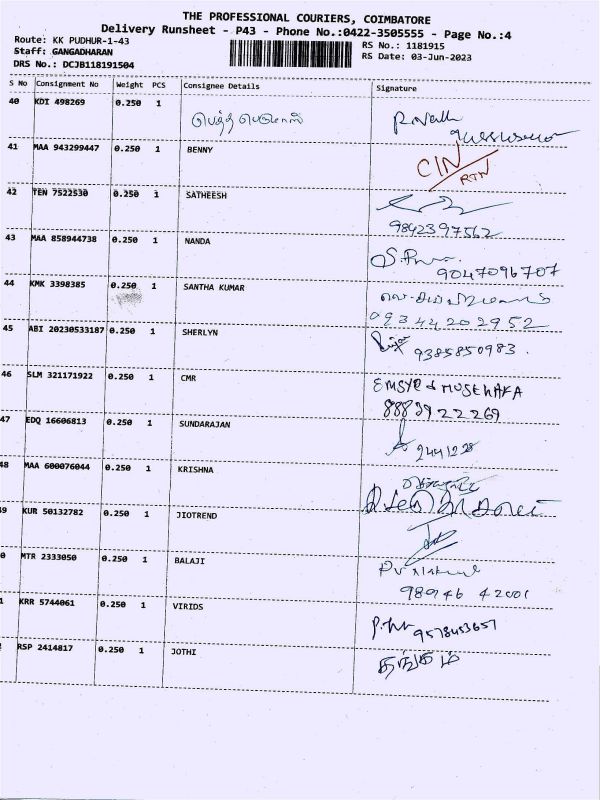 THE PROFESSIONAL COURIERS, COIMBATORE
Delivery Runsheet - P43 - Phone No.:0422-3505555 - Page No.:4
Route: KK PUDHUR-1-43
Staff: GANGADHARAN
DRS No.: DCJB118191504
RS No.: 1181915
RS Date: 03-Jun-2023
S No Consignment No Weight PCS Consignee Details Signature
40 KDI 498269 0.250 1
41 MAA 943299447 0.250 1 BENNY CIN
RTN
42 TEN 7522530 0.250 1 SATHEESH
9842397562
43 MAA 858944738 0.250 1 NANDA
9047096707
44 KMK 3398385 0.250 1 SANTHA KUMAR
09344202952
45 ABI 20230533187 0.250 1 SHERLYN
9385850983.
46 SLM 321171922 0.250 1 CMR
8883922269
47 EDQ 16606813 0.250 1 SUNDARAJAN
2441228
48 MAA 600076044 0.250 1 KRISHNA
9 KUR 50132782 0.250 1 JIOTREND
0 MTR 2333050 0.250 1 BALAJI
98946 42001
1 KRR 5744061 0.250 1 VIRIDS
9578453657
RSP 2414817 0.250 1 JOTHI
தங்கம்